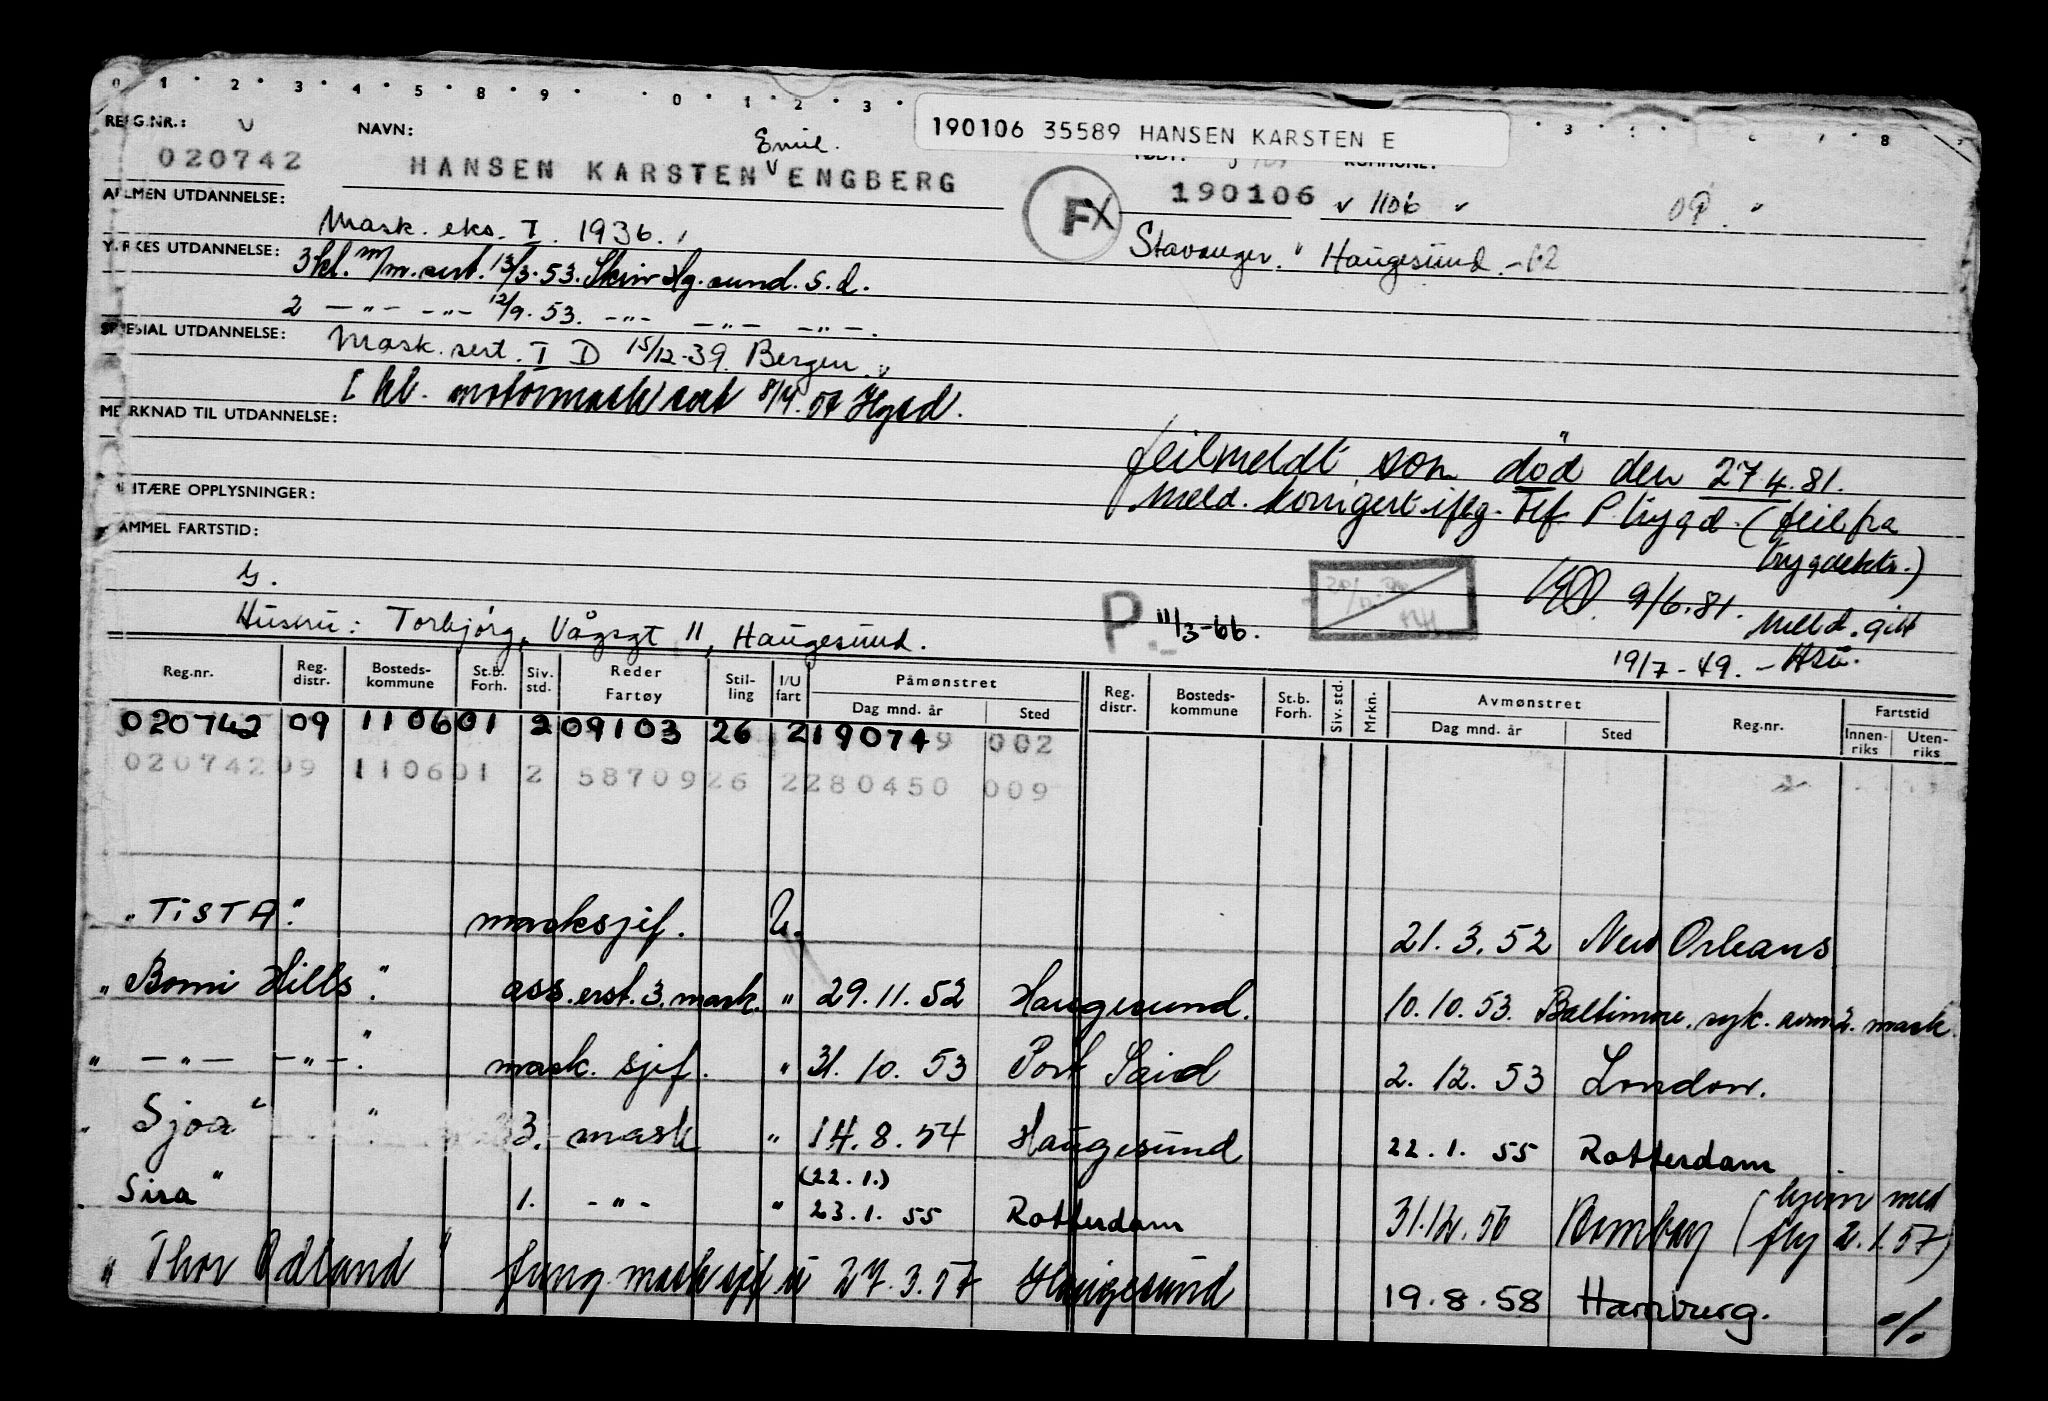 0 1 2 3 4 5 8 9 0 1 2 3
190106 35589 HANSEN KARSTEN E
REG.NR.: NAVN: Emil. KOMMUNE:
020742 HANSEN KARSTEN V ENGBERG 190106 1106
ALLMEN UTDANNELSE: FX
Mask. eks. I. 1936. Stavanger. Haugesund.
YRKES UTDANNELSE: 3 kl. m/m. sert. 13/3-53. Skinv Hg.sund. S.d.
2 —"— —"— 12/9.53. —"— —"— —"—.
SPESIAL UTDANNELSE: Mask. sert. I D 15/12-39. Bergen.
I kl. motormask sert Hgsd.
MERKNAD TIL UTDANNELSE:
feilmeldt som död den 27.4.81.
Meld. korrigert iflg. Tlf. P.trygd. (feil fra
trygdektr.)
MILITÆRE OPPLYSNINGER:
GAMMEL FARTSTID:
9/6.81. Meld. gitt
Hustru: Torbjörg, Vågsgt 11, Haugesund. P. 11/3-66.
19/7-49. -
Reg.nr. Reg. distr. Bosteds- kommune St.b. Forh. Siv. std. Reder Fartøy Stil- ling I/U fart Påmønstret Dag mnd. år Sted Reg. distr. Bosteds- kommune St.b. Forh. Siv. std. Mrkn. Avmønstret Dag mnd. år Sted Reg.nr. Fartstid Innen- riks Uten- riks
020742 09 1106 01 2 09103 26 2 190749 002
020742 09 1106 01 2 58709 26 2 280450 009
"TISTA." masksjef. U. 21.3.52 New Orleans
"Bomi Hills". ass. erst. 3. mask. " 29.11.52 Haugesund. 10.10.53. Baltimore. syk. avm 2. mask.
" —"— —"—". mask. sjef. " 31.10.53 Port Said 2.12.53 London.
" Sjoa" 3. mask " 14.8.54 Haugesund 22.1.55 Rotterdam
" Sira" 1. -"- " (22.1.) 23.1.55 Rotterdam 31.12.56 Bombay (hjem med fly 2.1.57)
" Thor Odland" fung. mask sjef u 27.3.57 Haugesund 19.8.58 Hamburg. ./.